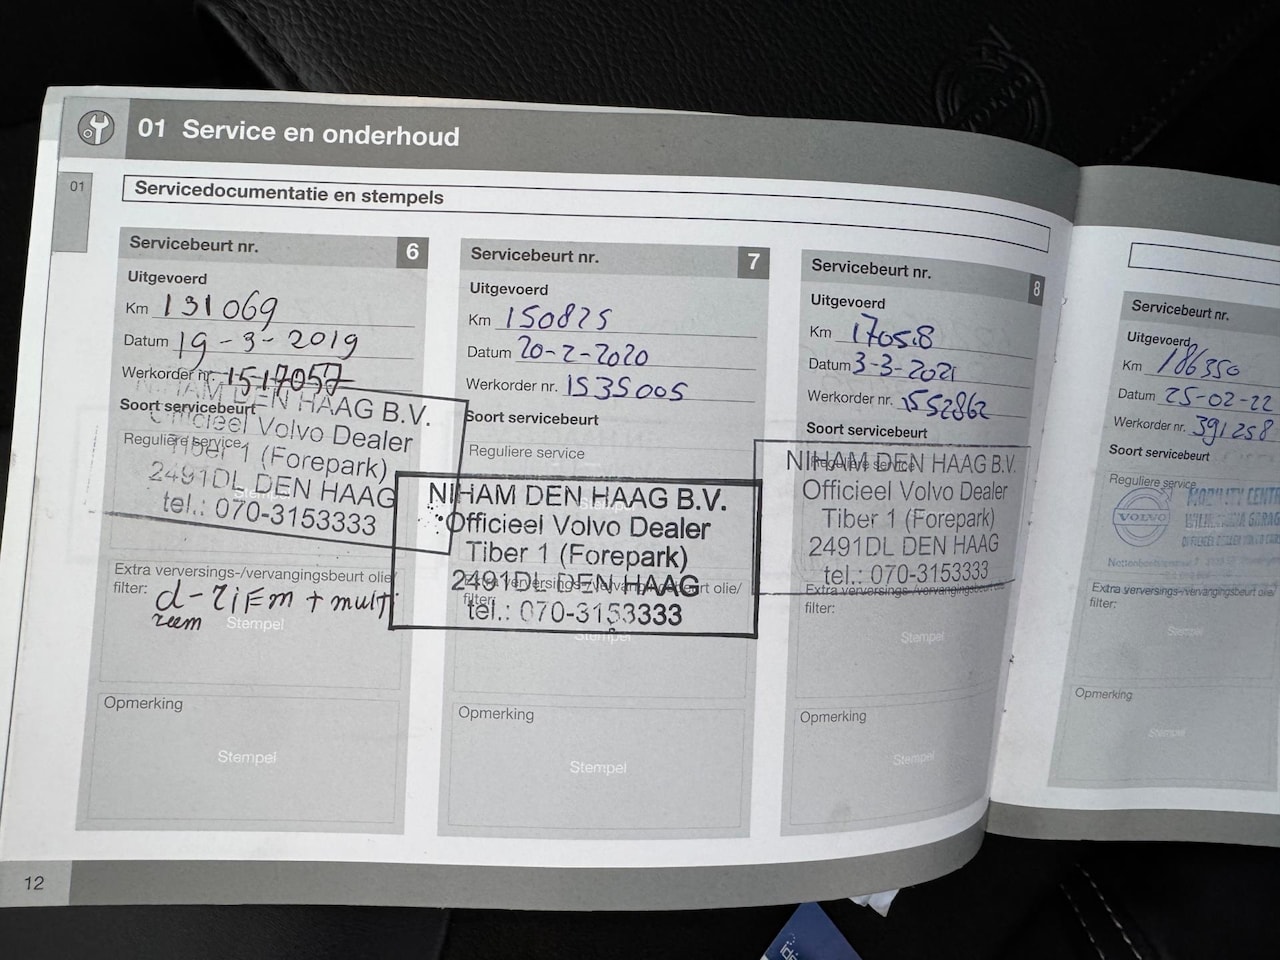 01 Service en onderhoud
01
Servicedocumentatie en stempels
Servicebeurt nr. 6
Uitgevoerd
Km 131069
Datum 19-3-2019
Werkorder nr. 1517057
NIHAM DEN HAAG B.V.
Soort servicebeurt
Officieel Volvo Dealer
Reguliere service
Tiber 1 (Forepark)
2491DL DEN HAAG
Stempel
tel.: 070-3153333
Extra verversings-/vervangingsbeurt olie/
filter: d-riem + multi
riem
Stempel
Opmerking
Stempel
Servicebeurt nr. 7
Uitgevoerd
Km 150825
Datum 20-2-2020
Werkorder nr. 1535005
Soort servicebeurt
Reguliere service
NIHAM DEN HAAG B.V.
Officieel Volvo Dealer
Tiber 1 (Forepark)
2491DL DEN HAAG
Extra verversings-/vervangingsbeurt olie/
filter:
tel.: 070-3153333
Stempel
Opmerking
Stempel
Servicebeurt nr. 8
Uitgevoerd
Km 17058
Datum 3-3-2021
Werkorder nr. 1552862
Soort servicebeurt
Reguliere service
NIHAM DEN HAAG B.V.
Officieel Volvo Dealer
Tiber 1 (Forepark)
2491DL DEN HAAG
tel.: 070-3153333
Extra verversings-/vervangingsbeurt olie/
filter:
Stempel
Opmerking
Stempel
Servicebeurt nr.
Uitgevoerd
Km 186350
Datum 25-02-22
Werkorder nr. 391258
Soort servicebeurt
Reguliere service
VOLVO
MOBILITY CENT
Extra verversings-/vervangingsbeurt olie/
filter:
Stempel
Opmerking
Stempel
12
VOLVO